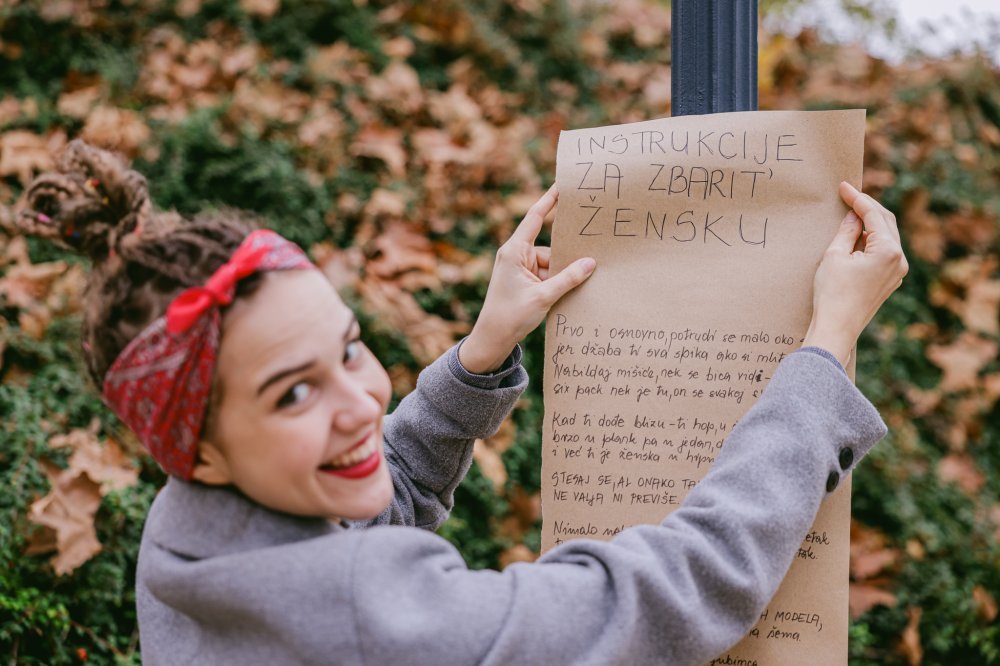 INSTRUKCIJE
ZA ZBARIT'
ŽENSKU
Prvo i osnovno, potrudi se malo oko
jer džaba ti sva spika ako si mlit
Nabildaj mišiće, nek se bica vidi-
six pack nek je tu, on se svakoj s
Kad ti dođe blizu-ti hop, u
brzo u plank pa u jedan, d
i već ti je ženska u hrpn
STESAJ SE, AL ONAKO TA
NE VALJA NI PREVIŠE
Nimalo
MODELA,
na šema.